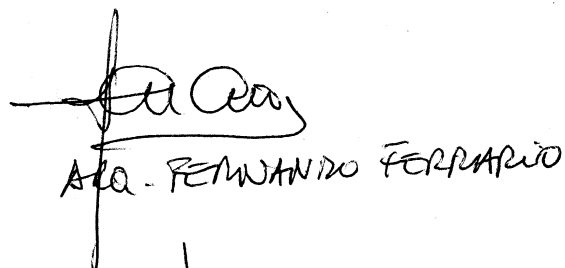 ARQ. FERNANDO FERRARIO